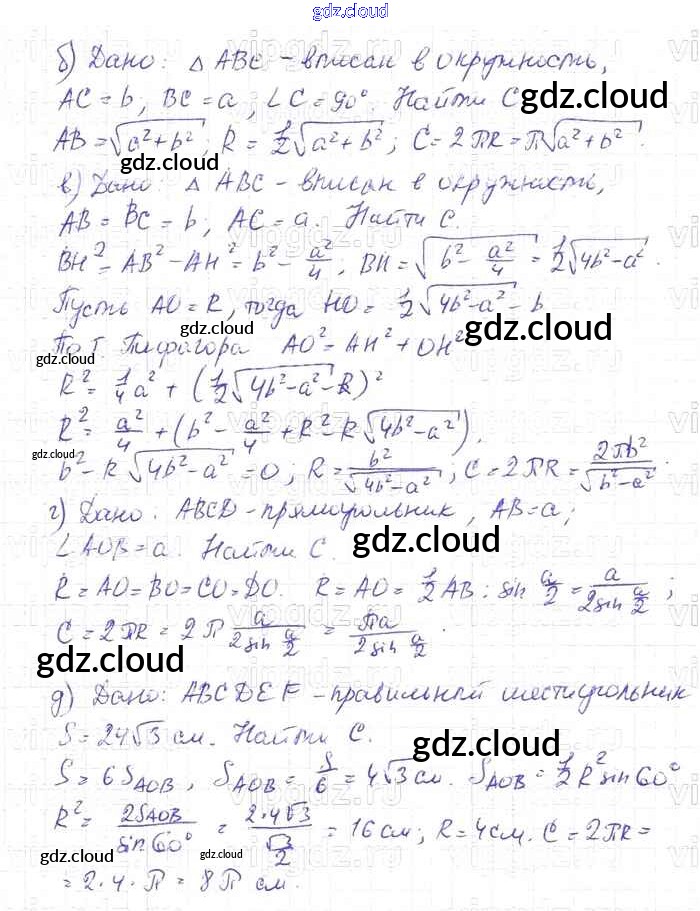 gdz.cloud
б) Дано: △ ABC - вписан в окружность,
AC = b, BC = a, ∠C = 90°. Найти C
gdz.cloud
AB = √(a²+b²); R = 1/2 √(a²+b²); C = 2πR = π√(a²+b²).
gdz.cloud
в) Дано: △ ABC - вписан в окружность,
AB = BC = b; AC = a. Найти C.
BH² = AB² - AH² = b² - a²/4; BH = √(b² - a²/4) = 1/2 √(4b²-a²).
Пусть AO = R, тогда HO = 1/2 √(4b²-a²) - b
gdz.cloud gdz.cloud
По т. Пифагора AO² = AH² + OH²
gdz.cloud
R² = 1/4 a² + (1/2 √(4b²-a²) - R)²
R² = a²/4 + (b² - a²/4 + R² - R√(4b²-a²)).
gdz.cloud
b² - R√(4b²-a²) = 0; R = b²/√(4b²-a²); C = 2πR = 2πb²/√(b²-a²).
г) Дано: ABCD - прямоугольник, AB = a;
∠AOB = a. Найти C.
gdz.cloud
R = AO = BO = CO = DO. R = AO = 1/2 AB : sin a/2 = a/(2sin a/2);
C = 2πR = 2π a/(2sin a/2) = πa/(2sin a/2).
gdz.cloud
д) Дано: ABCDEF - правильный шестиугольник
S = 24√3 см. Найти C.
gdz.cloud
S = 6S_AOB, S_AOB = S/6 = 4√3 см. S_AOB = 1/2 R² sin 60°
R² = 2S_AOB/sin 60° = 2·4√3/(√3/2) = 16 см; R = 4 см. C = 2πR =
gdz.cloud gdz.cloud gdz.cloud
= 2·4·π = 8π см.